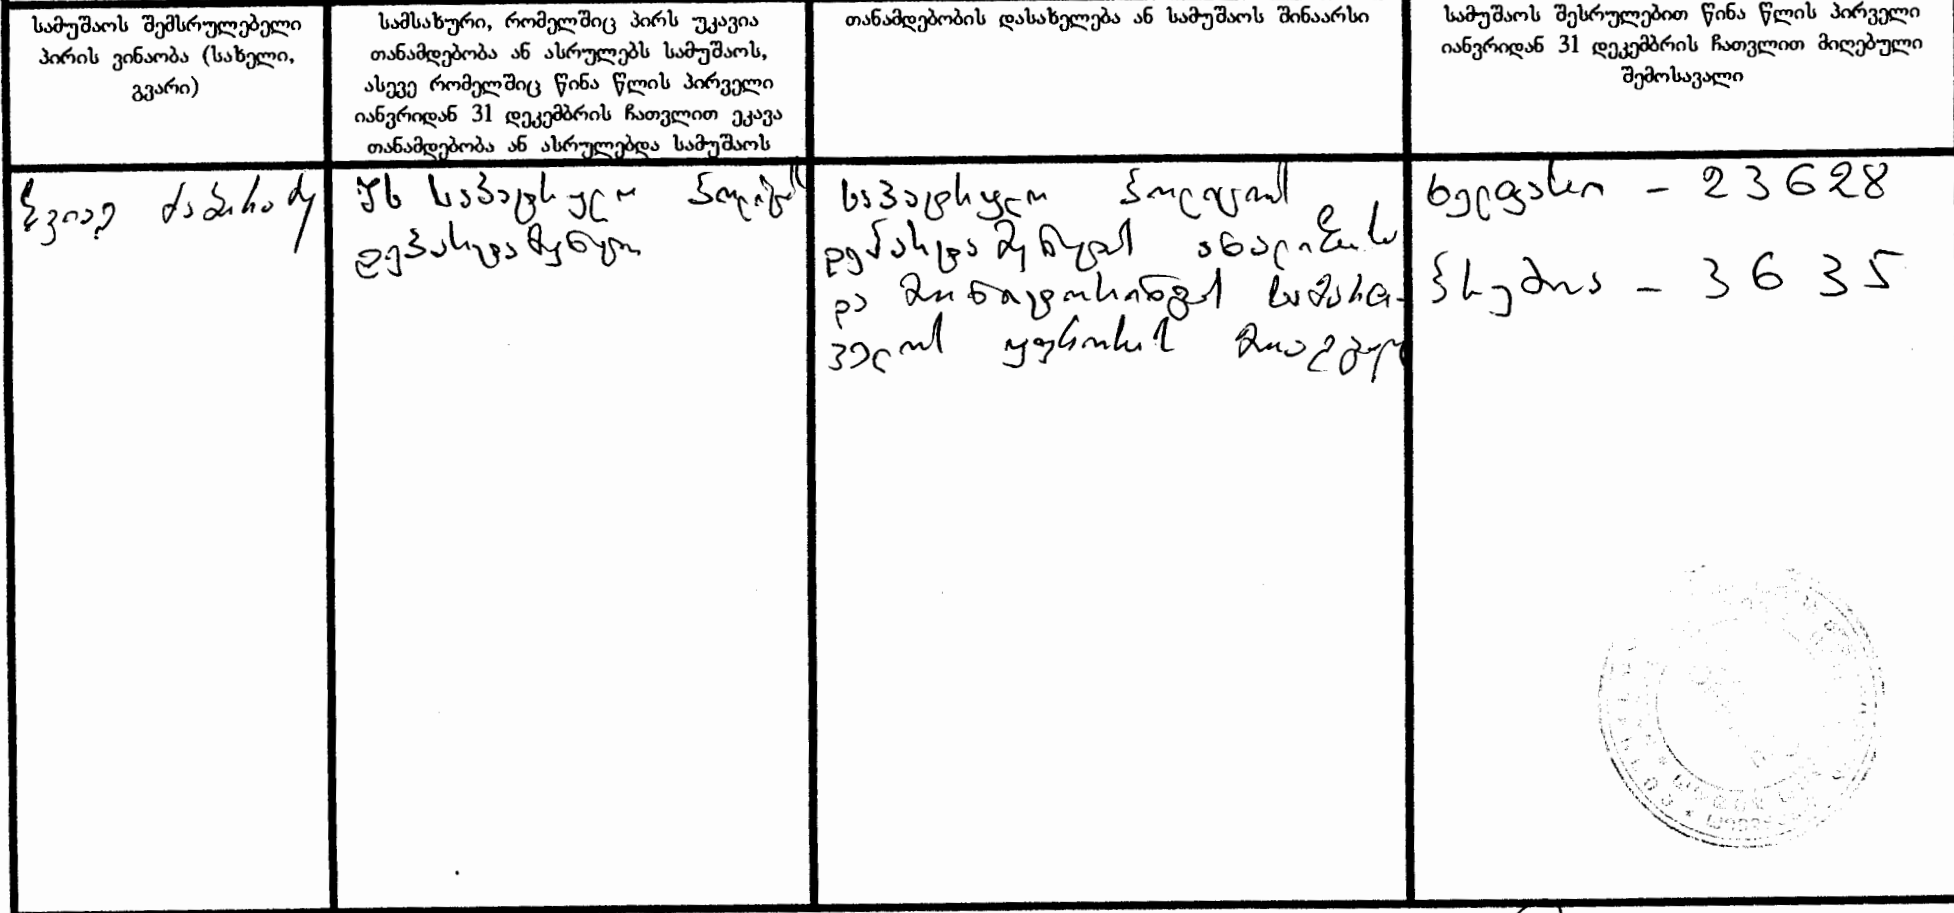 სამუშაოს შემსრულებელი
პირის ვინაობა (სახელი,
გვარი)
სამსახური, რომელშიც პირს უკავია
თანამდებობა ან ასრულებს სამუშაოს,
ასევე რომელშიც წინა წლის პირველი
იანვრიდან 31 დეკემბრის ჩათვლით ეკავა
თანამდებობა ან ასრულებდა სამუშაოს
თანამდებობის დასახელება ან სამუშაოს შინაარსი
სამუშაოს შესრულებით წინა წლის პირველი
იანვრიდან 31 დეკემბრის ჩათვლით მიღებული
შემოსავალი
ზვიად
შს საპატრულო პოლიციის
დეპარტამენტი
საპატრულო პოლიციის
დეპარტამენტის ანალიზისა
და მონიტორინგის სამმართ-
ველოს უფროსის მოადგილე
ხელფასი - 23628
პრემია - 3635